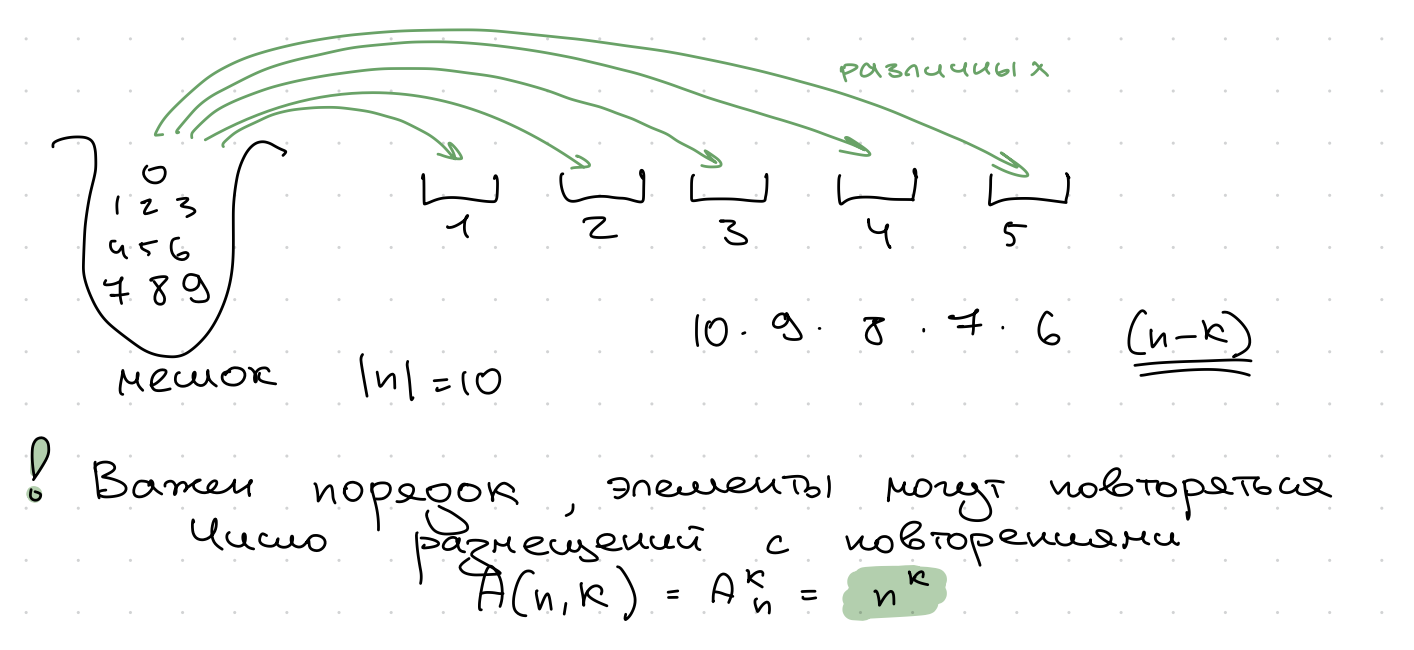 различных
0
1 2 3
4 5 6
7 8 9
1 2 3 4 5
10 · 9 · 8 · 7 · 6 (n-k)
мешок |n| = 10
! Важен порядок, элементы могут повторяться
Число размещений с повторениями
A(n,k) = Aₙᵏ = nᵏ